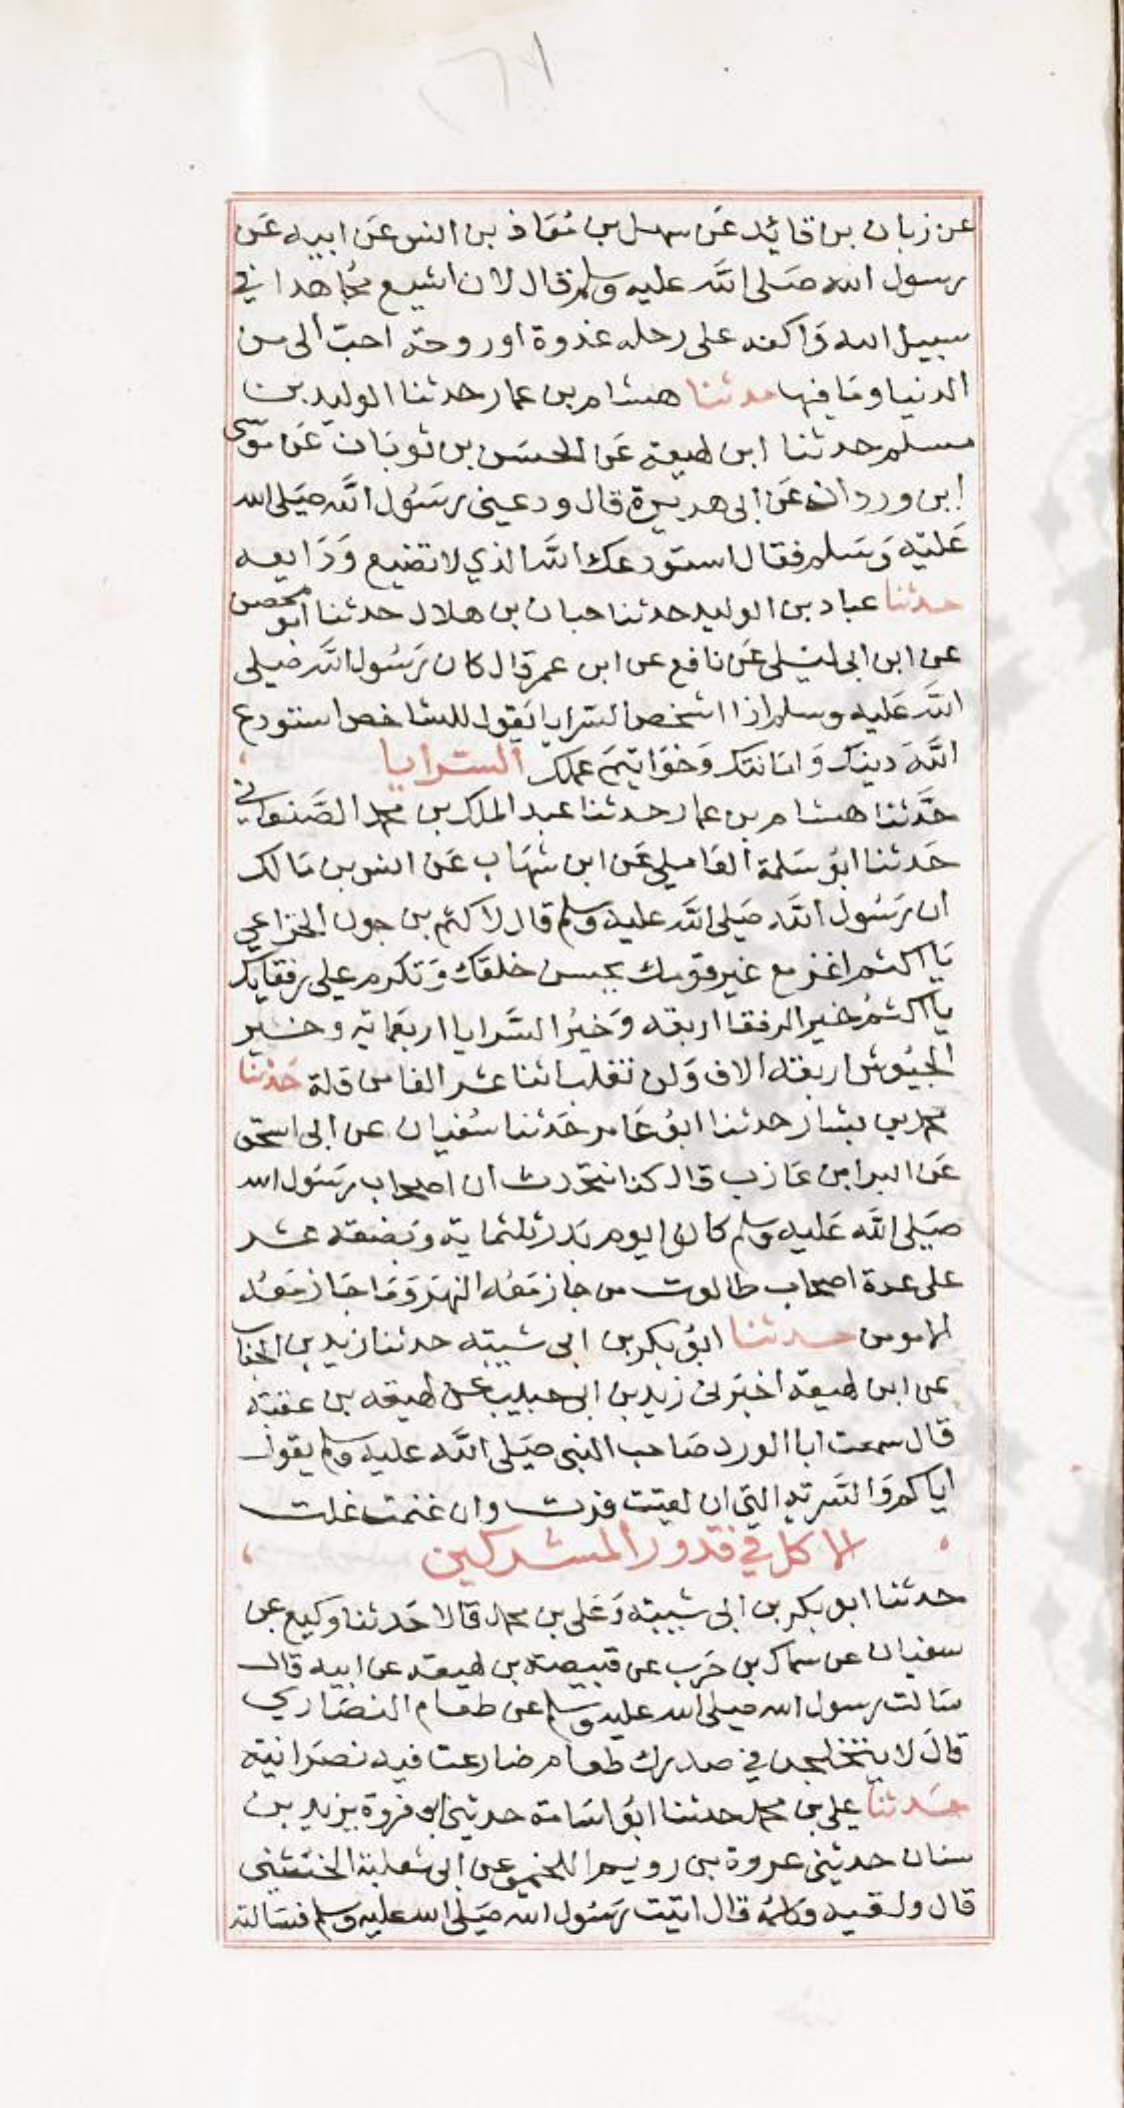 عن زبان بن قائد عَن سهل بن مُعَاذ بن انس عَن ابيه عَن
رسول الله صَلى الله عليه وسلم قال لان اشيع مُجاهدا في
سبيل الله وَاكفه على رحله غدوة او روحة احبّ الى من
الدنيا ومَا فيها حدثنا هشام بن عمار حدثنا الوليد بن
مسلم حدثنا ابن لهيعة عَن الحسَن بن ثوبَان عَن موسى
ابن وردان عَن ابى هريرة قال ودعينى رسَول الله صَلى الله
عَليه وَسَلم فقال استودعك الله الذي لا تضيع وَدَايعه
حدثنا عباد بن الوليد حدثنا حبان بن هلال حدثنا ابو محصن
عن ابن ابى ليَلى عَن نافع عن ابن عمر قال كان رَسُول الله صَلى
الله عَليه وسلم اذا اشخص السَرايا يَقول للشاخص استودع
الله دينَك وَامَانتك وَخوَاتيم عَملك السرايا
حَدَّثنا هشام بن عمار حدثنا عبد الملك بن محمد الصَنعاني
حَدثنا ابُو سَلمة العَاملي عَن ابن شهَاب عَن انس بن مَالك
ان رَسُول الله صَلى الله عليه وسلم قال لاكثم بن جون الخزاعي
يَا اكثم اغز مع غير قومك يحسن خلقك وَتكرم على رفقايك
يا اكثمُ خير الرفقا اربعه وَخيرُ السَرايا اربعَماية وخَير
الجيُوش اربعة الاف وَلن تغلب اثنا عشر الفا من قلة حَدثنا
محمد بن بشار حدثنا ابُو عَامر حَدثنا سُفيان عن ابى اسحق
عَن البرا بن عَازب قال كنا نتحَدث ان اصحاب رسَول الله
صَلى الله عَليه وسلم كانوا يوم بَدر ثلثماية وَبضعَة عشر
على عدة اصحاب طالوت من جاز مَعَه النهر وَمَا جَاز مَعَه
الا مومن حدثنا ابُو بكر بن ابى شيبَه حدثنا زيد بن الحبَاب
عن ابن لهيعة اخبَرنى زيد بن ابى حبيب عن لهيعه بن عقبَة
قال سمعت ابا الورد صَاحب النبى صَلى الله عليه وسلم يقول
اياكم وَالسَرية التى ان لقيت فرت وان غنمت غلت
الاكل في قدور المشركين
حدثنا ابو بكر بن ابى شيبَه وَعَلى بن محمد قالا حَدثنا وكيع عن
سفيان عن سماك بن حَرب عن قبيصة بن لهيعة عن ابيه قال
سَالت رسول الله صَلى الله عليه وسلم عن طعام النصَارى
قال لا يتخلجن في صدرك طعام ضارعت فيه نصَرانية
حَدثنا علي بن محمد حدثنا ابُو اسَامة حدثني ابو فروة يزيد بن
سنان حدثينى عروة بن رويم اللخمي عن ابى ثعلبة الخشني
قال ولقيه وَكلمُه قال اتيت رسَول الله صَلى الله عليه وسلم فسَالته